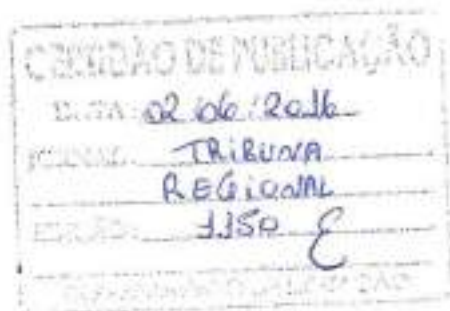 CERTIDÃO DE PUBLICAÇÃO
DATA: 02/06/2016
JORNAL: TRIBUNA
REGIONAL
EDIÇÃO: 1150